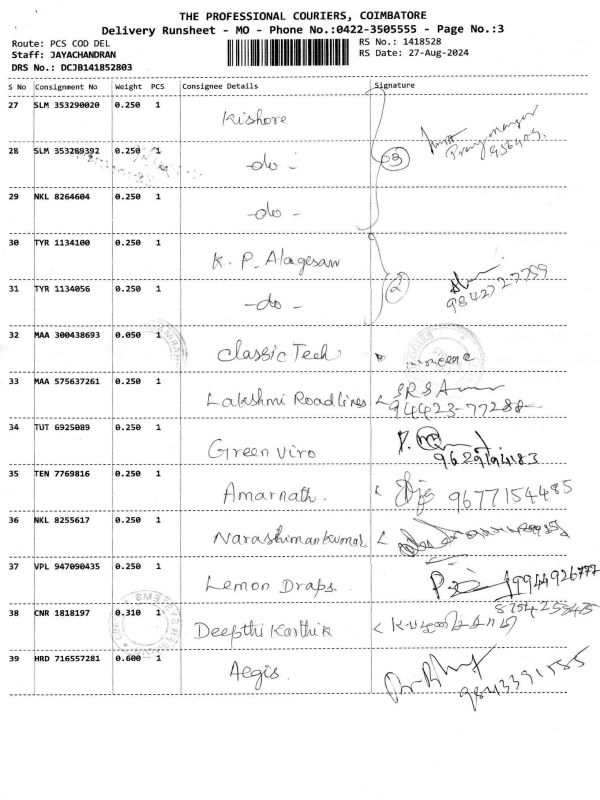 THE PROFESSIONAL COURIERS, COIMBATORE
Delivery Runsheet - MO - Phone No.:0422-3505555 - Page No.:3
Route: PCS COD DEL
Staff: JAYACHANDRAN
DRS No.: DCJB141852803
RS No.: 1418528
RS Date: 27-Aug-2024
S No Consignment No Weight PCS Consignee Details Signature
27 SLM 353290020 0.250 1 Kishore
28 SLM 353289392 0.250 1 -do- 3
29 NKL 8264604 0.250 1 -do-
30 TYR 1134100 0.250 1 K. P. Alagesan
31 TYR 1134056 0.250 1 -do- 2 9842727759
32 MAA 300438693 0.050 1 Classic Tech
33 MAA 575637261 0.250 1 Lakshmi Roadlines 94423-77288
34 TUT 6925089 0.250 1 Green viro 9629194183
35 TEN 7769816 0.250 1 Amarnath. 9677154485
36 NKL 8255617 0.250 1 Narashimankumar
37 VPL 947090435 0.250 1 Lemon Draps. 9944926777
38 CNR 1818197 0.310 1 Deepthi Karthik
39 HRD 716557281 0.600 1 Aegis. 9843391585